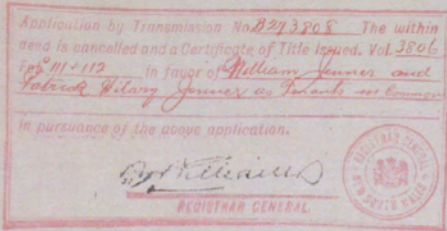 Application by Transmission No B273808 The within
deed is cancelled and a Certificate of Title issued. Vol. 3806
Fols 111+112 in favor of William Jenner and
Patrick Hilary Jenner as Tenants in Common
in pursuance of the above application.
REGISTRAR GENERAL.
REGISTRAR GENERAL